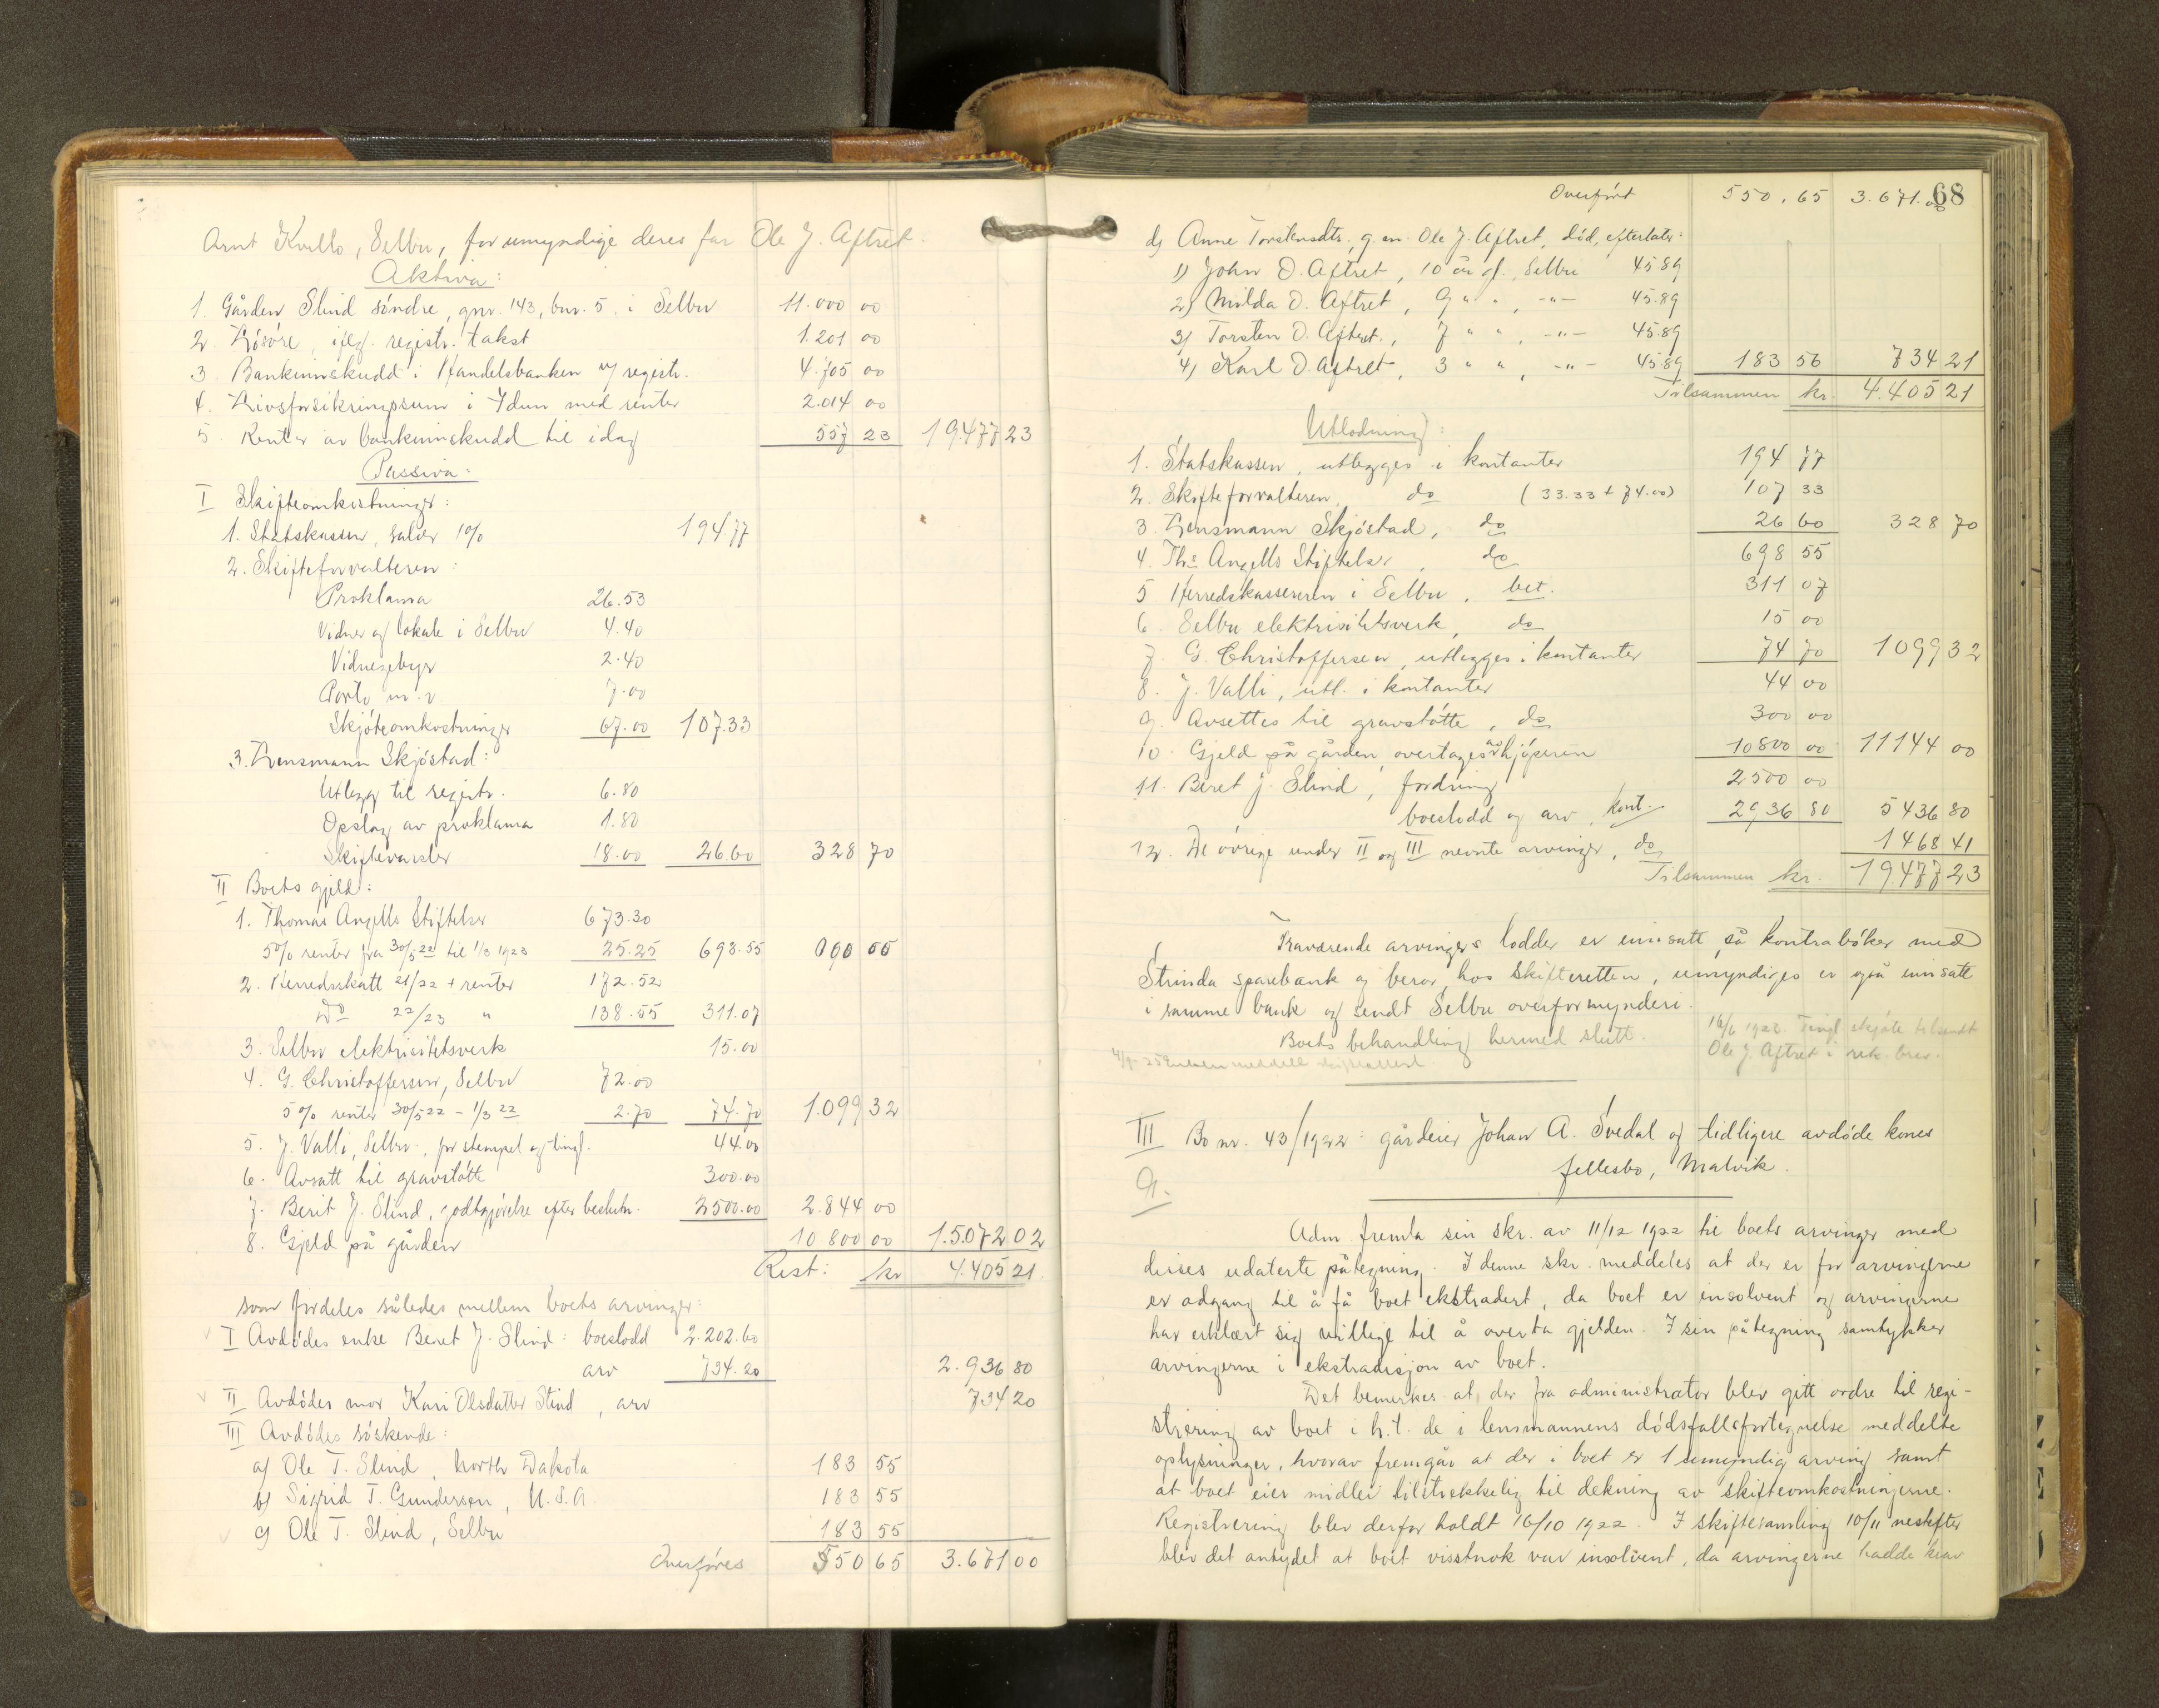 Arnt Kvello, Selbu, for umyndige deres far Ole J. Aftret.
Aktiva:
1. Gården Slind söndre, gnr. 143, bnr. 5, i Selbu 11.000 00
2. Lösöre, iflg. registr. takst 1.201 00
3. Bankinnskudd i Handelsbanken v/ registr. 4.705 00
4. Livsforsikringssum i Idun med renter 2.014 00
5. Renter av bankinnskudd til idag 557 23 19.477 23
Passiva:
I Skifteomkostninger:
1. Statskassen, salær 1% 194.77
2. Skifteforvalteren:
Proklama 26.53
Vidner og lokale i Selbu 4.40
Vidnegebyr 2.40
Porto m.v. 7.00
Skjöteomkostninger 67.00 107.33
3. Lensmann Skjöstad:
Utlegg til registr. 6.80
Opslag av proklama 1.80
Skiftevarsler 18.00 26.60 328 70
II Boets gjeld:
1. Thomas Angells Stiftelser 673.30
5% renter fra 30/5 22 til 1/3 1923 25.25 698.55
2. Herredsskatt 21/22 + renter 172.52
Do 22/23 " 138.55 311.07
3. Selbu elektricitetsverk 15.00
4. G. Christoffersen, Selbu 72.00
5% renter 30/5 22 - 1/3 22 2.70 74.70 1.099 32
5. J. Valli, Selbu, for stempel og tingl. 44.00
6. Avsatt til gravstötte 300.00
7. Berit J. Slind, godtgjörelse efter beslutn. 2500.00 2.844 00
8. Gjeld på gården 10 800 00 15.072 02
Rest: kr 4.405 21
som fordeles således mellem boets arvinger:
I Avdödes enke Beret J. Slind: boeslodd 2.202.60
arv 734.20 2.936 80
II Avdödes mor Kari Olsdatter Slind, arv 734 20
III Avdödes söskende:
a) Ole T. Slind, North Dakota 183 55
b) Sigrid T. Gundersen, U.S.A. 183 55
c) Ole T. Slind, Selbu 183 55
Overföres 550 65 3.671 00
Overfört 550.65 3.671.00
68
d) Anne Torstensdtr. g. m. Ole J. Aftret, död, efterlater:
1) John O. Aftret, 10 år gl., Selbu 45.89
2) Milda O. Aftret, 9 " " , -"- 45.89
3) Torsten O. Aftret, 7 " " , -"- 45.89
4) Karl O. Aftret, 3 " " , -"- 45.89 183 56 734 21
Tilsammen kr. 4.405 21
Utlodning:
1. Statskassen, utlegges i kontanter 194 77
2. Skifteforvalteren, do (33.33 + 74.00) 107 33
3. Lensmann Skjöstad, do 26 60 328 70
4. Ths Angells Stiftelser, do 698 55
5 Herredskassereren i Selbu, bet. 311 07
6. Selbu elektrisitetsverk, do 15 00
7. G. Christoffersen, utlegges i kontanter 74 70 1099 32
8. J. Valli, utl. i kontanter 44 00
9. Avsettes til gravstötte, do 300 00
10. Gjeld på gården, overtages av kjöperen 10800 00 11144 00
11. Beret J. Slind, fordring 2500 00
boeslodd og arv, kont. 2936 80 5436 80
12. De övrige under II og III nevnte arvinger, do 1468 41
Tilsammen kr. 19.477 23
Fraværende arvingers lodder er innsatt på kontraböker med
Strinda sparebank og beror hos skifteretten, umyndiges er også innsatt
i samme bank og sendt Selbu overformynderi.
Boets behandling hermed slutt.
16/6 1923. Tingl. skjöte tilsendt
Ole J. Aftret i rek. brev.
III Bo nr. 43/1922: gårdeier Johan A. Svedal og tidligere avdöde kones
fellesbo, Malvik.
Adm. fremla sin skr. av 11/12 1922 til boets arvinger med
disses udaterte påtegning. I denne skr. meddeles at der er for arvingerne
er adgang til å få boet ekstradert, da boet er insolvent og arvingerne
har erklært sig villige til å overta gjelden. I sin påtegning samtykker
arvingerne i ekstradisjon av boet.
Det bemerkes at der fra administrator blev gitt ordre til regi-
strering av boet i h.t. de i lensmannens dödsfallsfortegnelse meddelte
oplysninger, hvorav fremgår at der i boet er 1 umyndig arving samt
at boet eier midler tilstrekkelig til dekning av skifteomkostningerne.
Registrering blev derfor holdt 16/10 1922. I skiftesamling 10/11 nestefter
blev det antydet at boet visstnok var insolvent, da arvingerne hadde krav